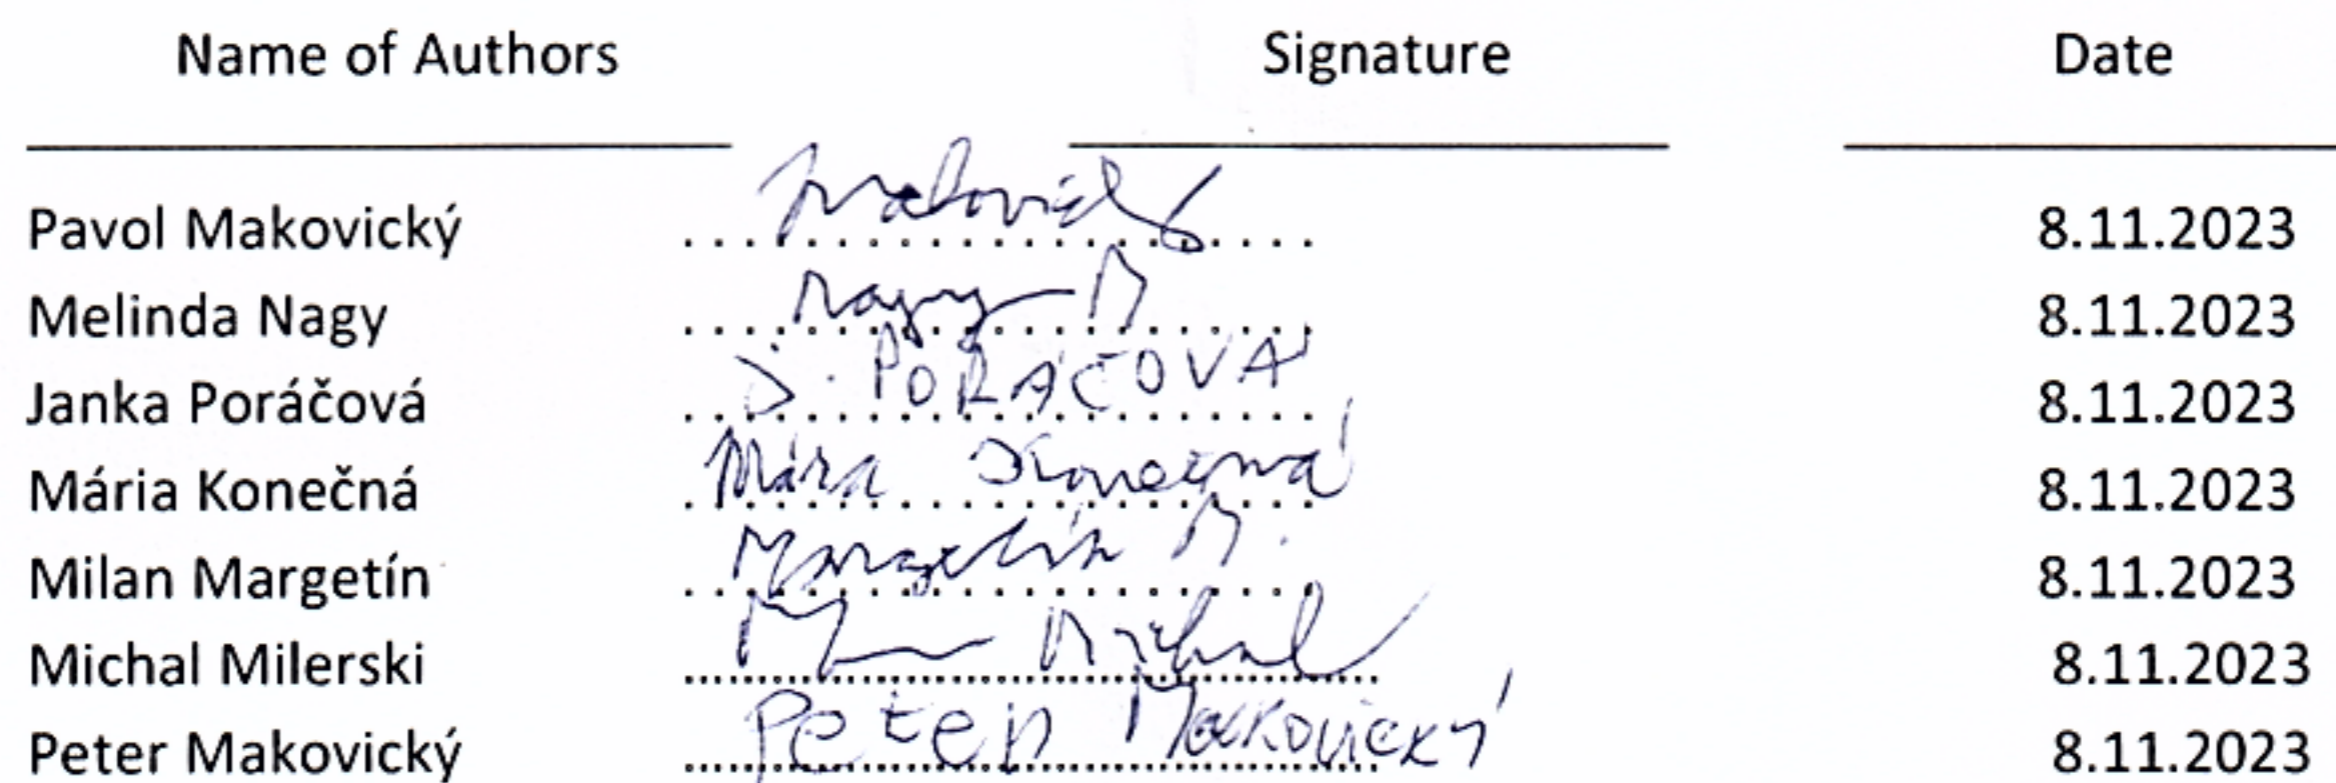 Name of Authors Signature Date
Pavol Makovický Makovický 8.11.2023
Melinda Nagy Nagy M 8.11.2023
Janka Poráčová J. PORÁČOVÁ 8.11.2023
Mária Konečná Mária Konečná 8.11.2023
Milan Margetín Margetín M. 8.11.2023
Michal Milerski Michal 8.11.2023
Peter Makovický Peter Makovický 8.11.2023